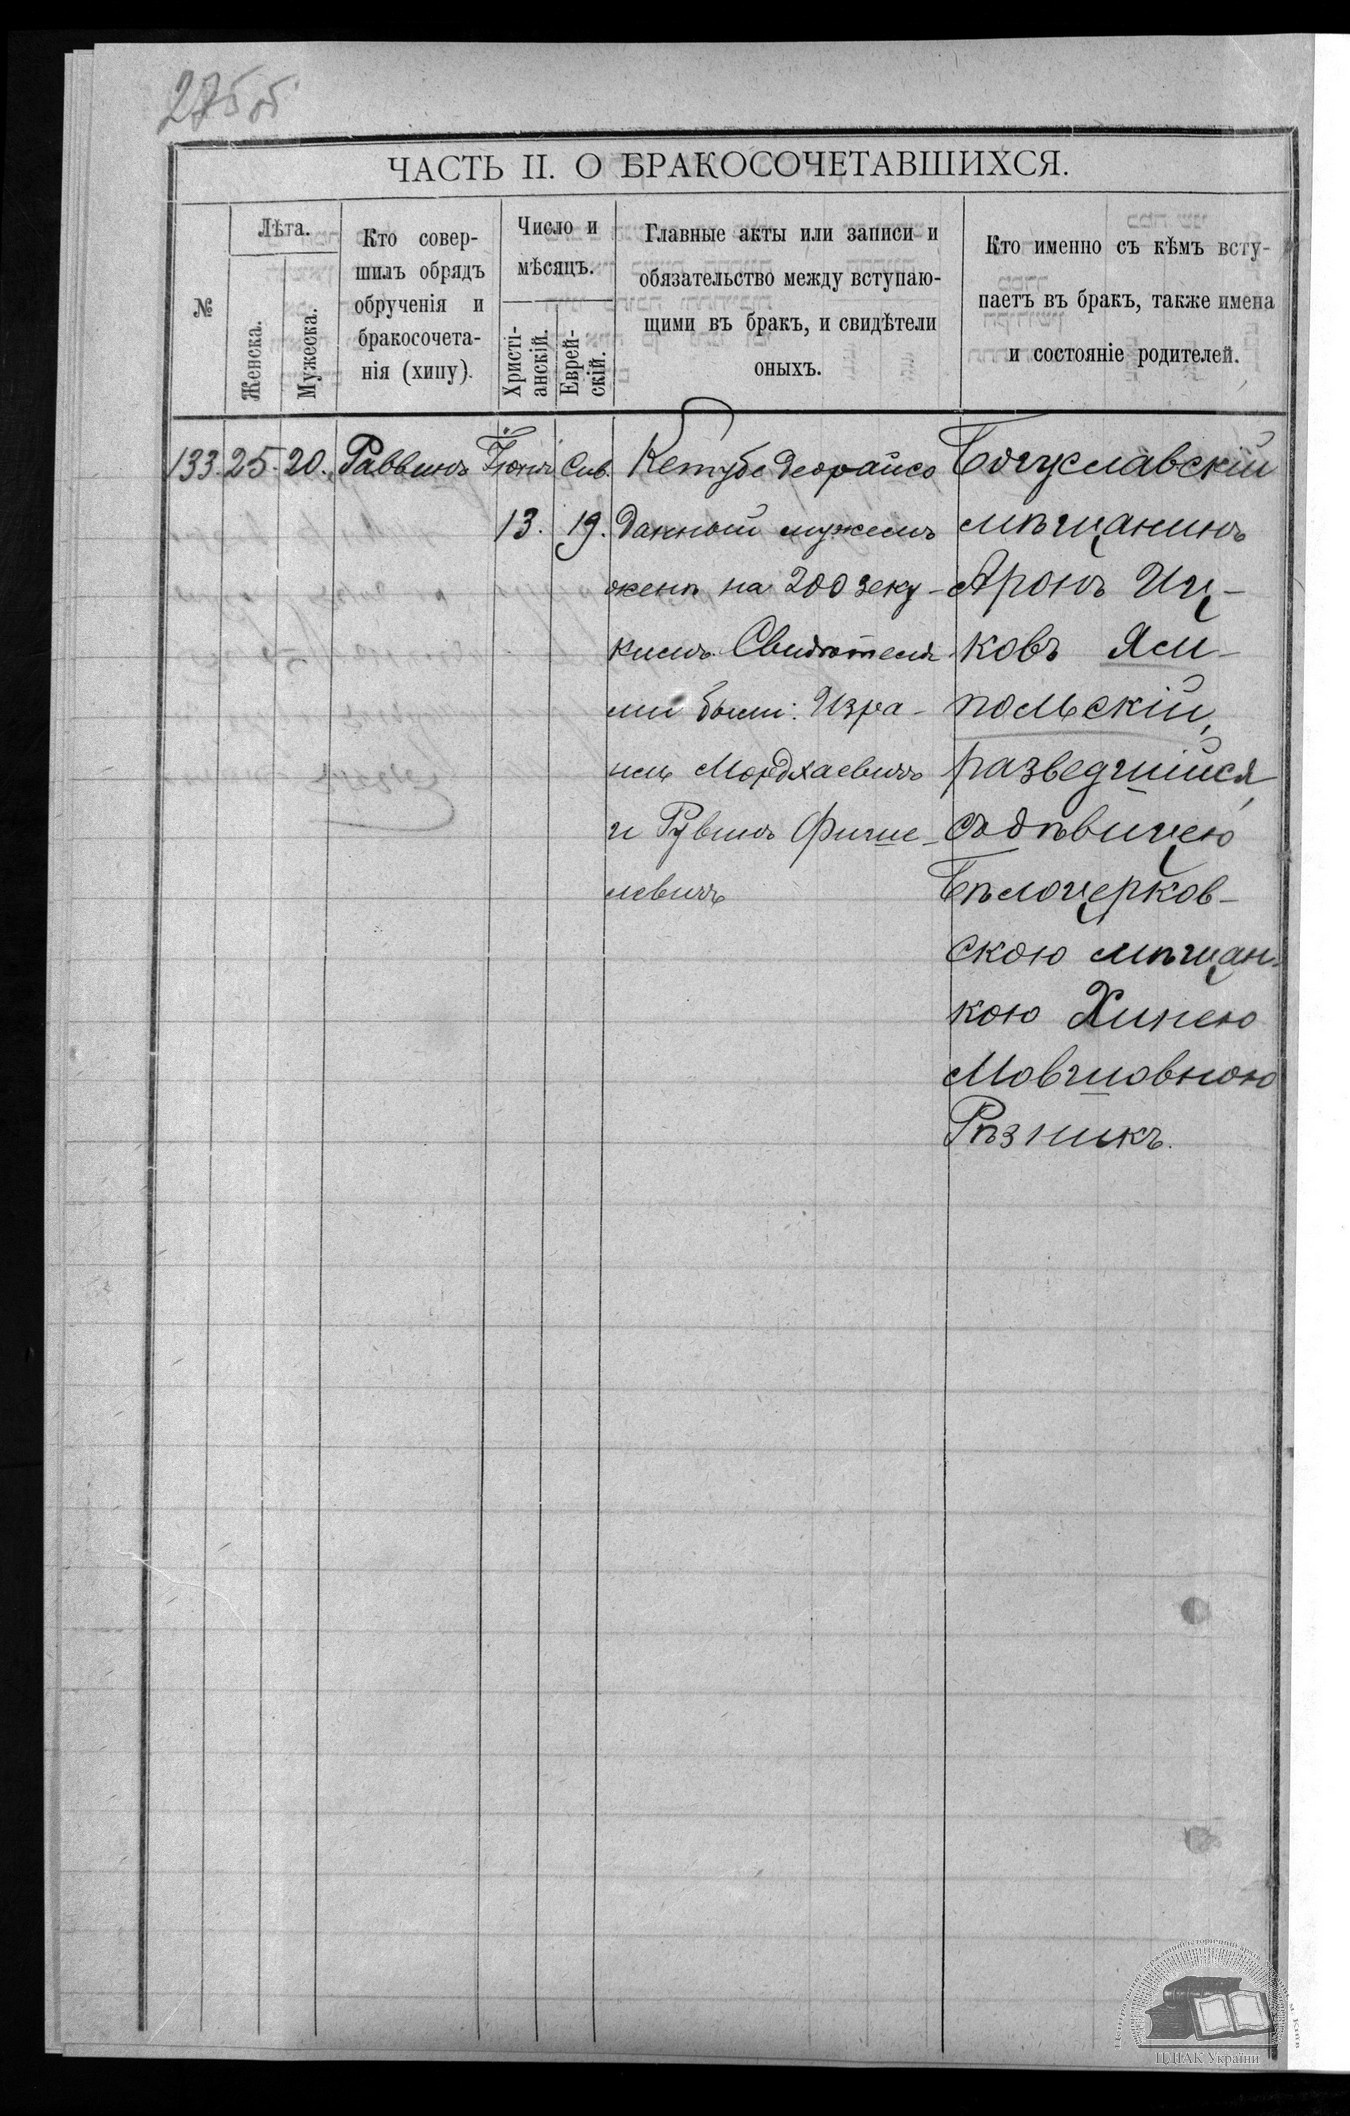 275 об
ЧАСТЬ II. О БРАКОСОЧЕТАВШИХСЯ.
№
Лѣта.
Женска.
Мужеска.
Кто совер-
шилъ обрядъ
обрученія и
бракосочета-
нія (хипу).
Число и
мѣсяцъ.
Христі-
анскій.
Еврей-
скій.
Главные акты или записи и
обязательство между вступаю-
щими въ бракъ, и свидѣтели
оныхъ.
Кто именно съ кѣмъ всту-
паетъ въ бракъ, также имена
и состояніе родителей.
133. 25. 20. Раввинъ Іюнь Сив.
13. 19.
Кетубе деорайсо
данный мужемъ
женѣ на 200 зеку-
кимъ. Свидѣтеля-
ми были: Изра-
иль Мордхаевичъ
и Рувинъ Фише-
левичъ
Богуславскій
мѣщанинъ
Аронъ Иц-
ковъ Ям-
польскій,
разведшійся,
съ дѣвицею
Бѣлоцерков-
скою мѣщан-
кою Хинею
Мовшовною
Рѣзникъ.
ЦДІАК України